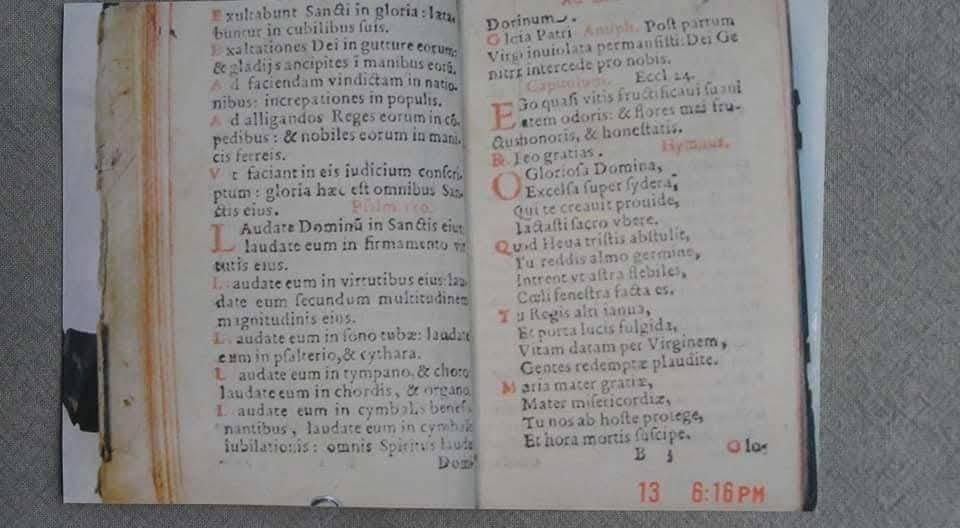 Exultabunt Sancti in gloria: læta-
buntur in cubilibus suis.
Exaltationes Dei in gutture eorum:
& gladij ancipites i manibus eorũ.
Ad faciendam vindictam in natio-
nibus: increpationes in populis.
Ad alligandos Reges eorum in cõ-
pedibus: & nobiles eorum in mani-
cis ferreis.
Vt faciant in eis iudicium conscri-
ptum: gloria hæc est omnibus San-
ctis eius. Psalm. 150.
LAudate Dominũ in Sanctis eius
laudate eum in firmamento vir
tutis eius.
Laudate eum in virtutibus eius: lau
date eum secundum multitudinem
magnitudinis eius.
Laudate eum in sono tubæ: laudate
eum in psalterio, & cythara.
Laudate eum in tympano, & choro
laudate eum in chordis, & organo
Laudate eum in cymbalis beneso
nantibus, laudate eum in cymbalis
iubilationis: omnis Spiritus laude
Domi
Dominum.
Glcia Patri Antiph. Post partum
Virgo inuiolata permansisti: Dei Ge
nitrix intercede pro nobis.
Capitulum. Eccl. 24.
EGo quasi vitis fructificaui suaui
tatem odoris: & flores mei fru-
ctus honoris, & honestatis.
R. Deo gratias. Hymnus.
O Gloriosa Domina,
Excelsa super sydera,
Qui te creauit prouide,
lactasti sacro vbere.
Quod Heua tristis abstulit,
Tu reddis almo germine,
Intrent vt astra flebiles,
Cœli fenestra facta es.
Tu Regis alti ianua,
Et porta lucis fulgida,
Vitam datam per Virginem,
Gentes redemptæ plaudite.
Maria mater gratiæ,
Mater misericordiæ,
Tu nos ab hoste protege,
Et hora mortis suscipe.
B 3 Glo-
13 6:16PM